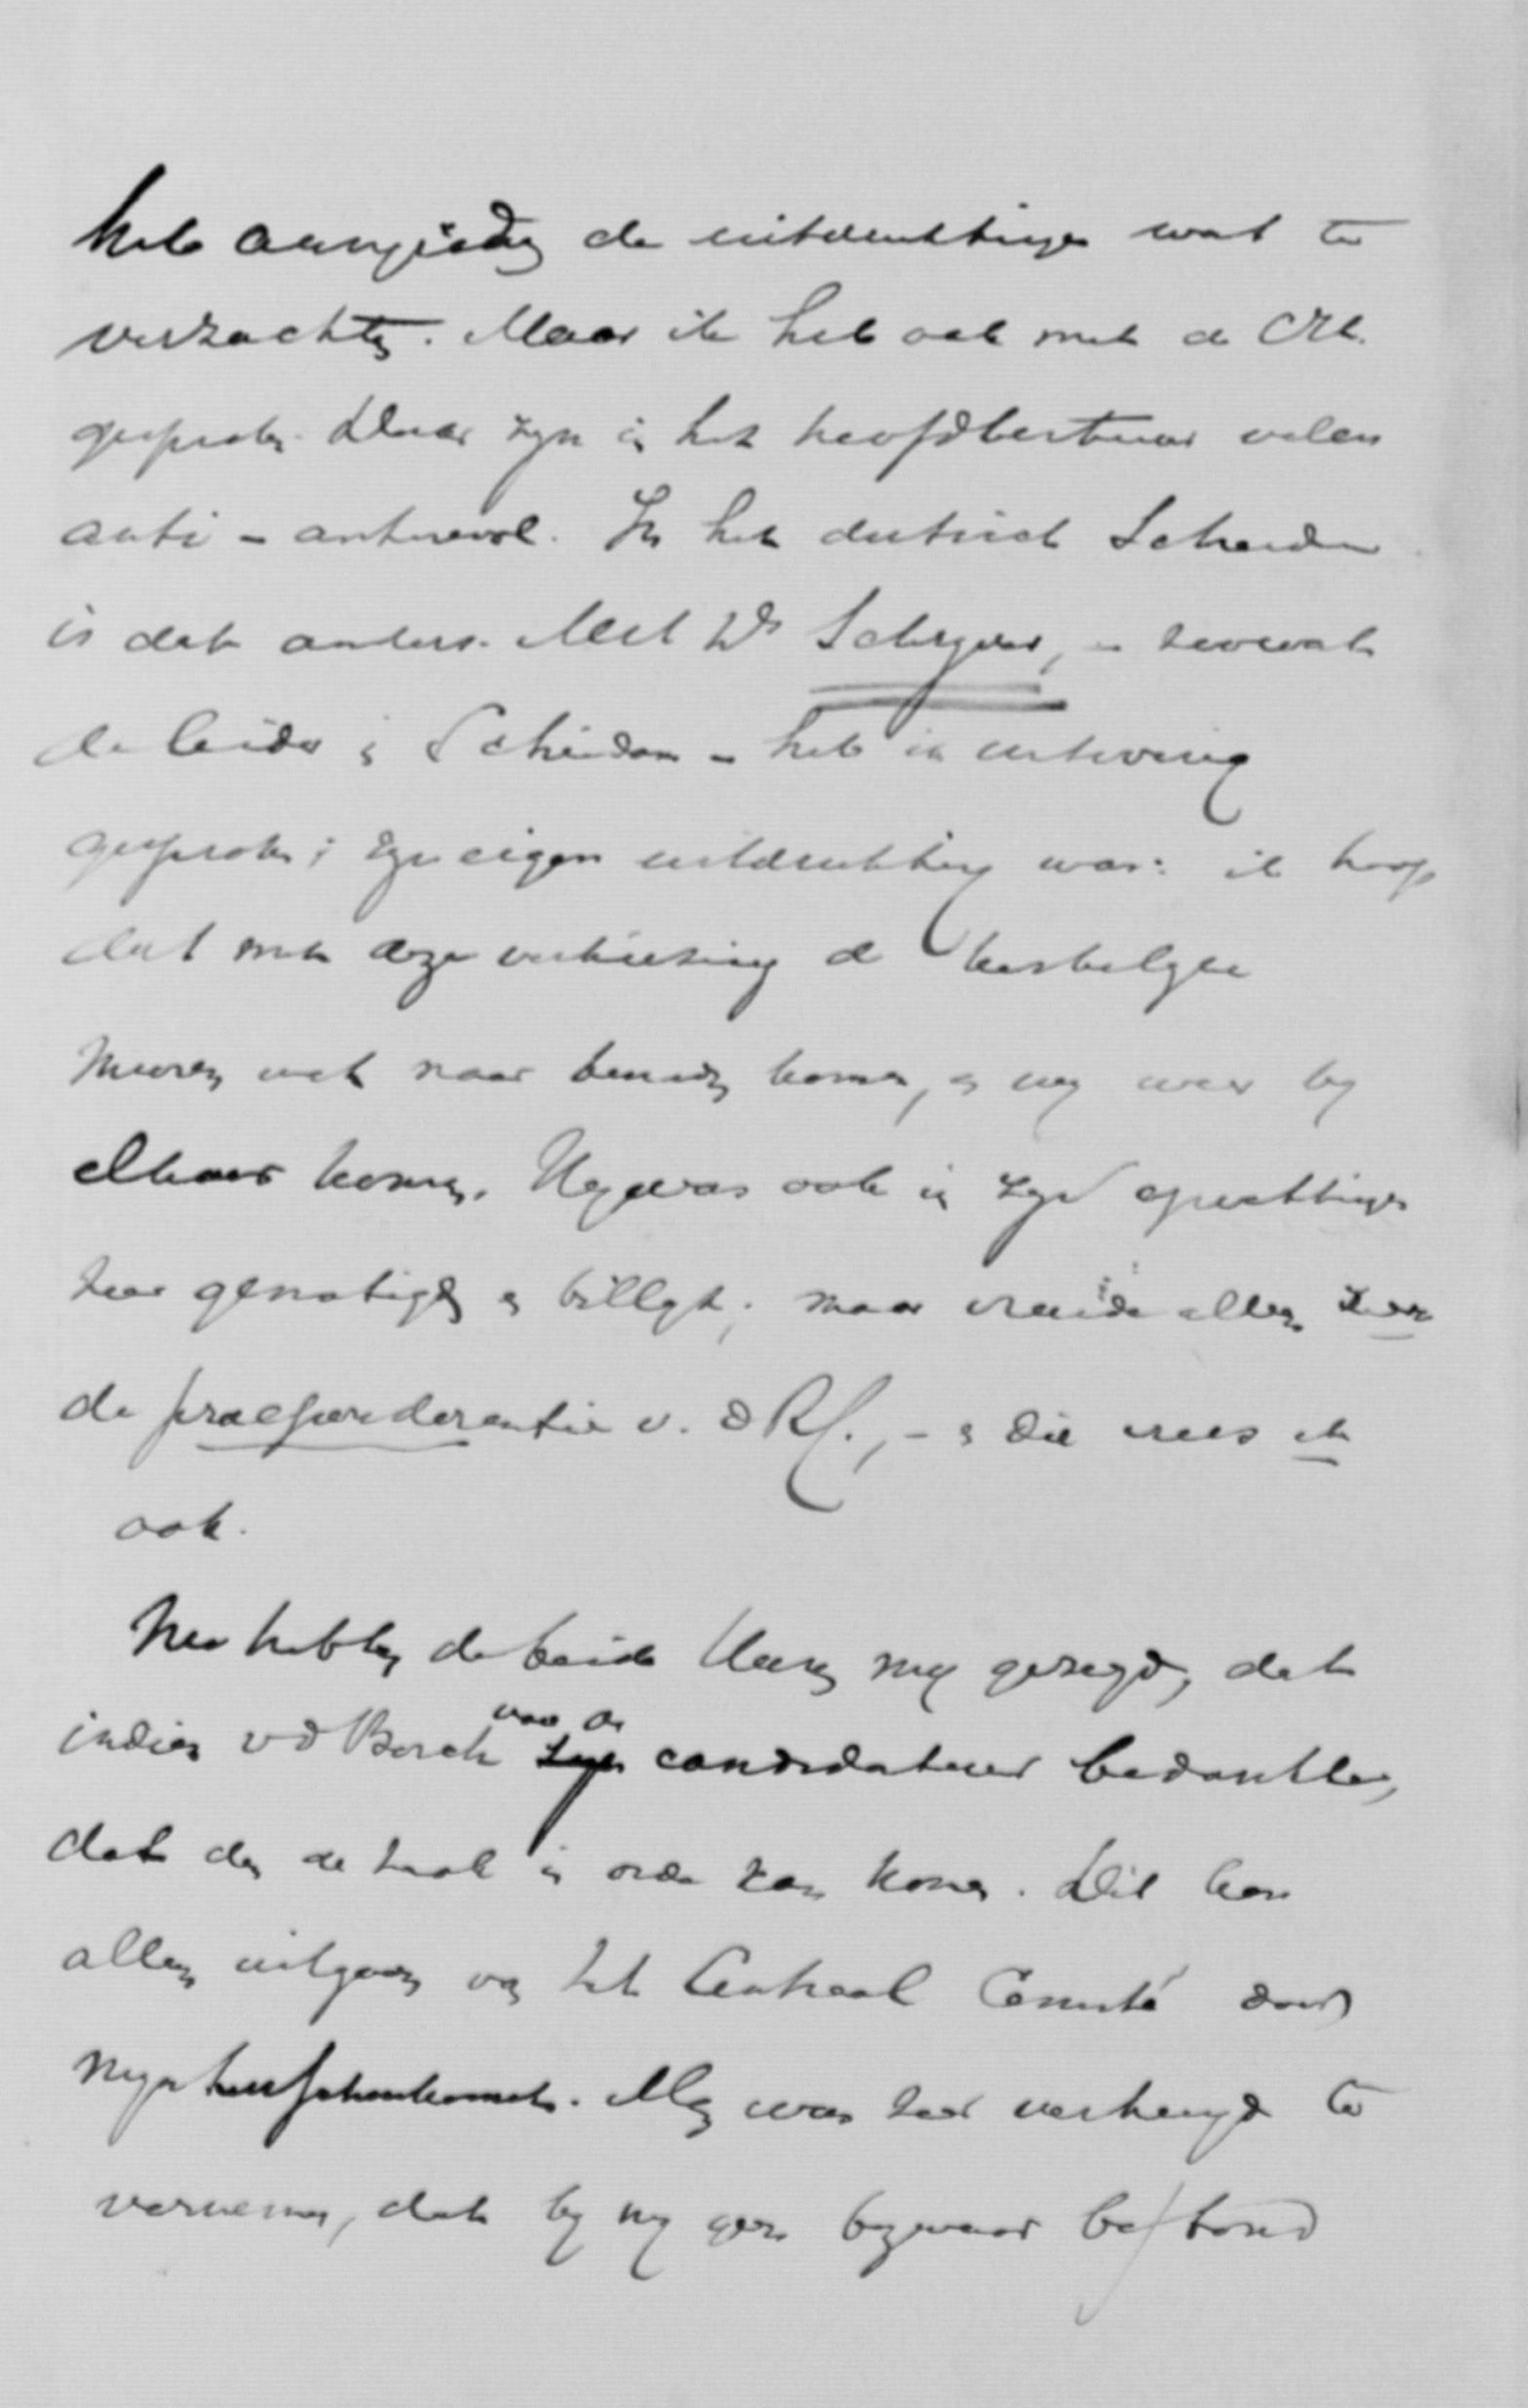 heb aangeraden de uitdrukkingen wat te
verzachten. Maar ik heb ook met de CH.
gesproken. Daar zijn in het hoofdbestuur velen
anti-antirevol. In het district Schiedam
is dat anders. Met Ds Schrijver, - zoowat
de leider in Schiedam - heb ik uitvoerig
gesproken; zijn eigen uitdrukking was: ik hoop
dat met deze verkiezing de kerkelijke
muren wat naar beneden komen, en wij weer bij
elkaar komen. Hij was ook in zijn opvattingen
zeer gematigd en billijk; maar vreesde alleen zeer
de praeponderantie v. d Rf., - en die vrees ik
ook.
Nu hebben de beide Heeren mij gezegd, dat
indien vd Borch voor de candidatuur bedankte,
dat dan de zaak in orde kan komen. Dit kan
alleen uitgaan van het Centraal Comité door
mijn tusschenkomst. Men was zeer verheugd te
vernemen, dat bij mij geen bezwaar bestond